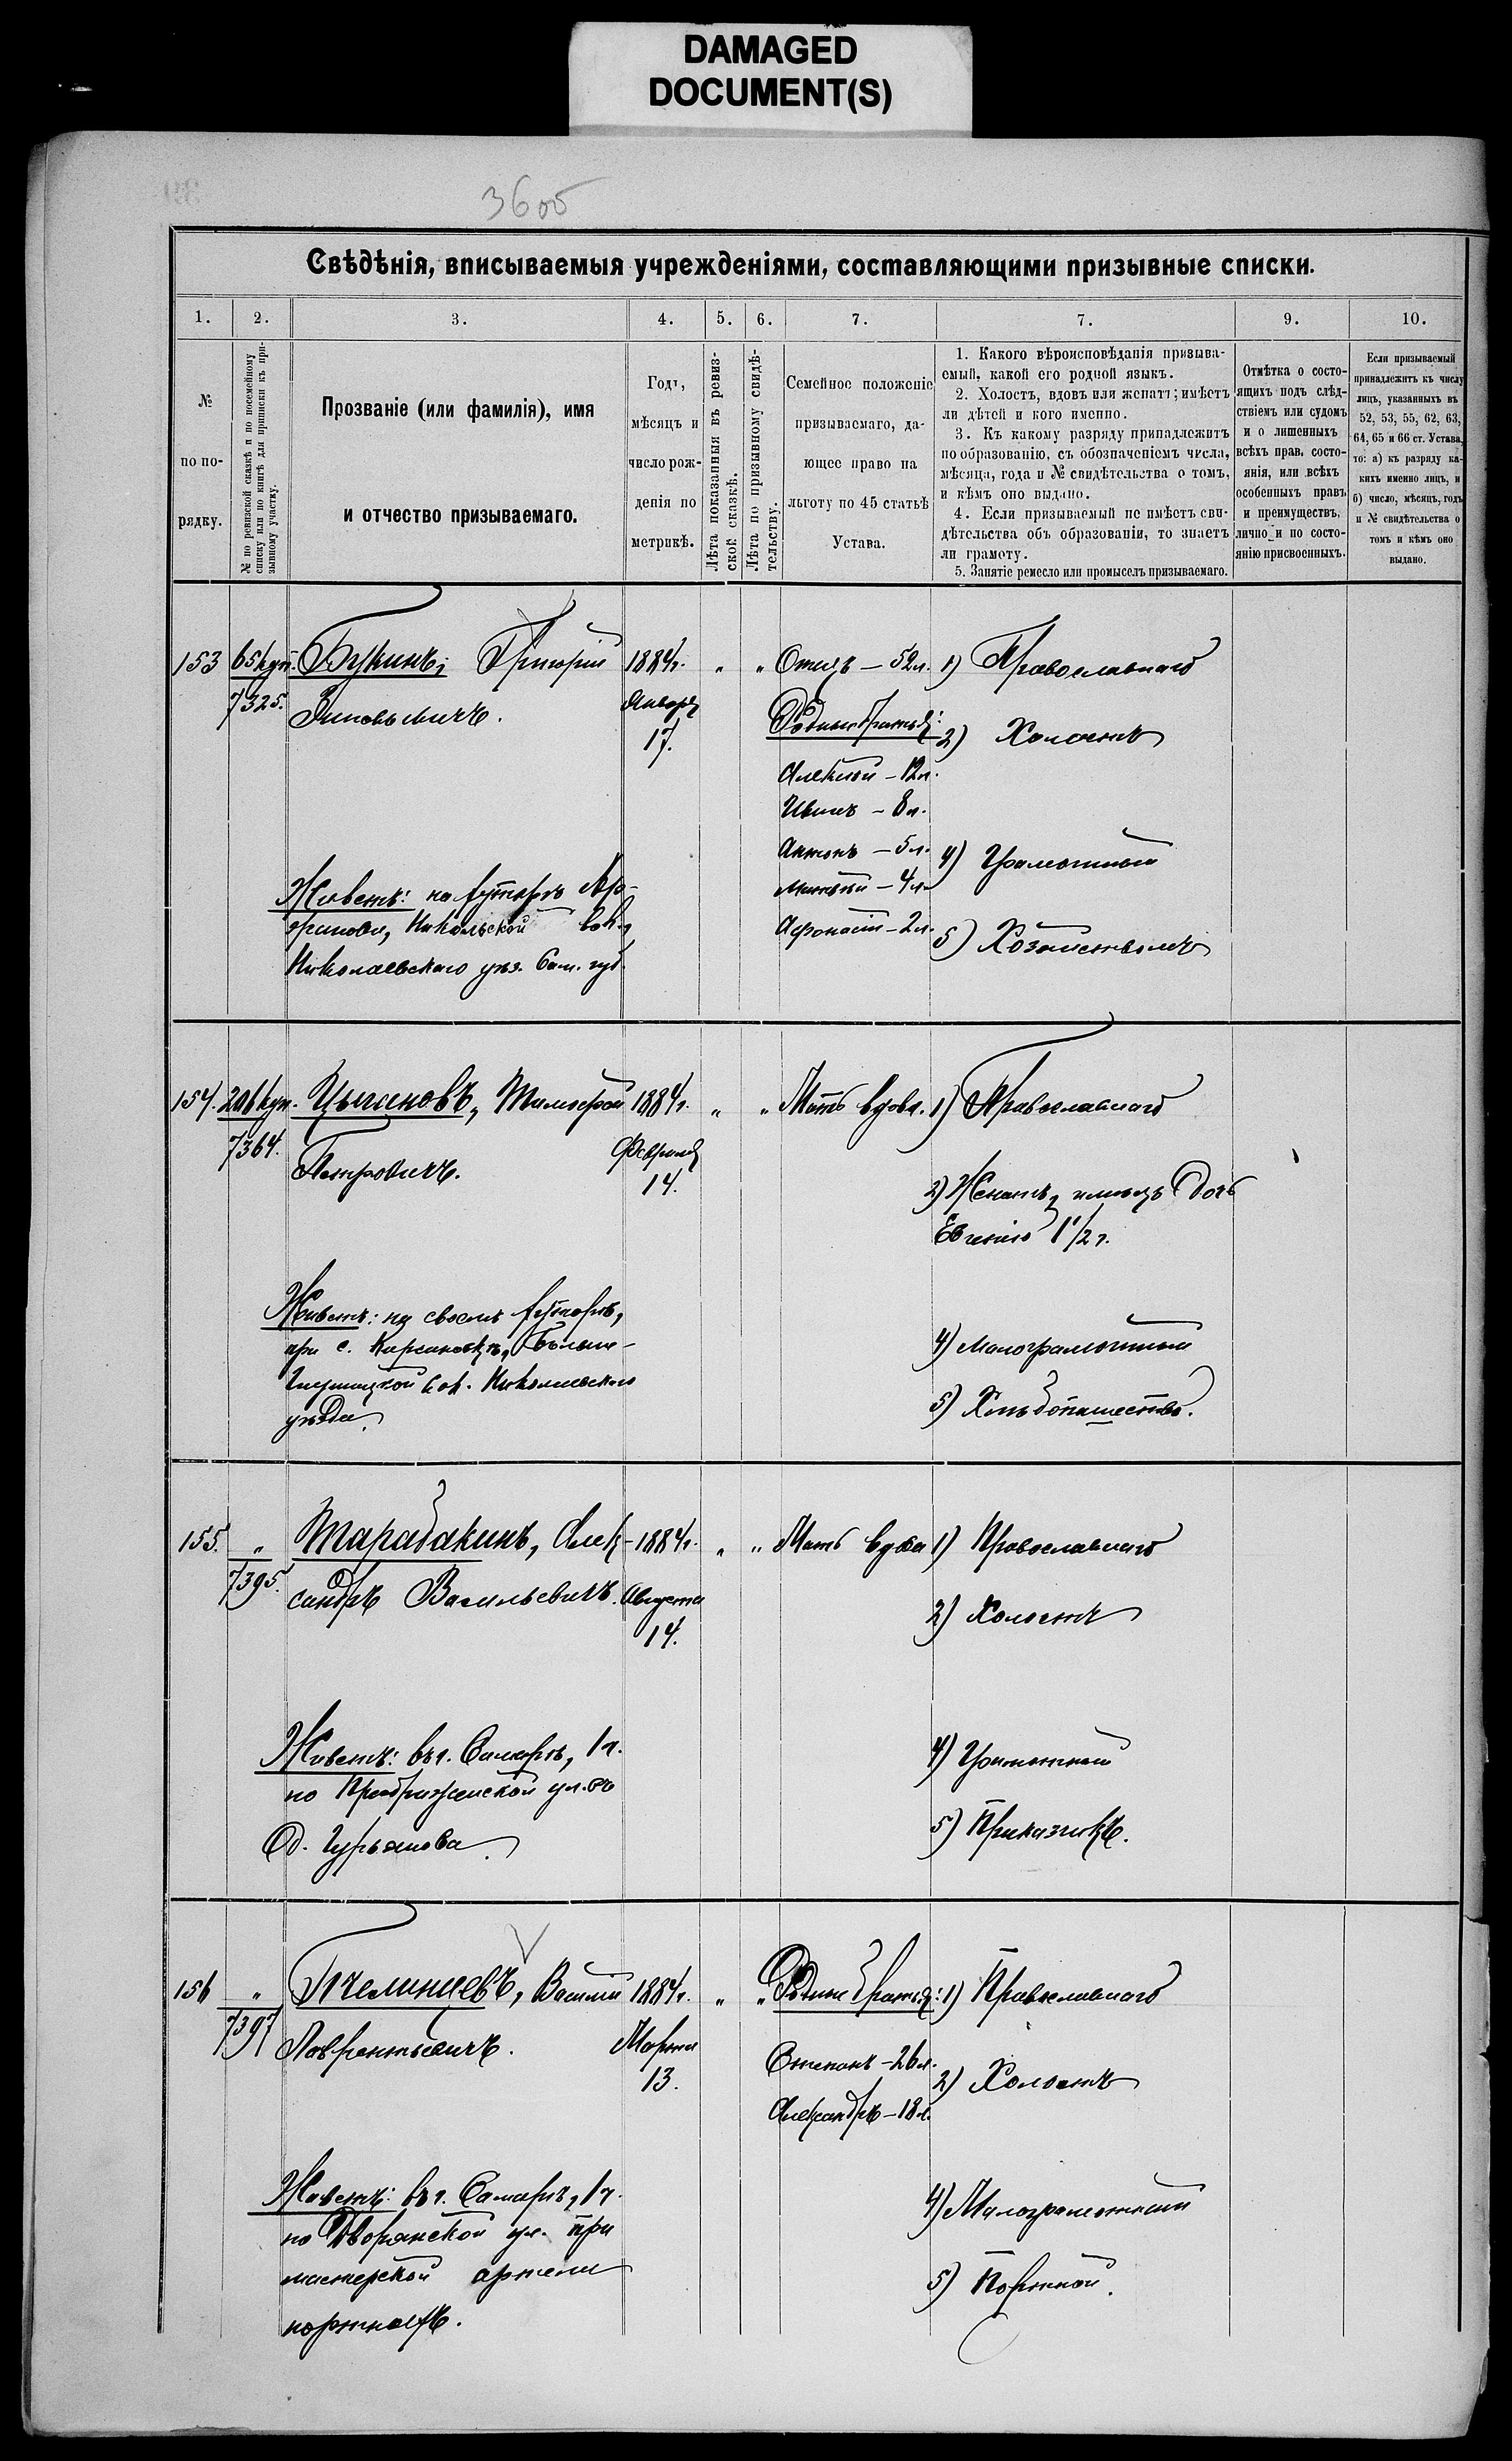 DAMAGED
DOCUMENT(S)
36 об
Свѣдѣнія, вписываемыя учрежденіями, составляющими призывные списки.
1. 2. 3. 4. 5. 6. 7. 7. 9. 10.
№
по по-
рядку.
№ по ревизской сказкѣ и по посемейному
списку или по книгѣ для приписки къ при-
зывному участку.
Прозваніе (или фамилія), имя
и отчество призываемаго.
Годъ,
мѣсяцъ и
число рож-
денія по
метрикѣ.
Лѣта показанныя въ ревиз-
ской сказкѣ.
Лѣта по призывному свидѣ-
тельству.
Семейное положеніе
призываемаго, да-
ющее право на
льготу по 45 статьѣ
Устава.
1. Какого вѣроисповѣданія призыва-
емый, какой его родной языкъ.
2. Холостъ, вдовъ или женатъ; имѣетъ
ли дѣтей и кого именно.
3. Къ какому разряду принадлежитъ
по образованію, съ обозначеніемъ числа,
мѣсяца, года и № свидѣтельства о томъ,
и кѣмъ оно выдано.
4. Если призываемый не имѣетъ сви-
дѣтельства объ образованіи, то знаетъ
ли грамоту.
5. Занятіе ремесло или промыселъ призываемаго.
Отмѣтка о состо-
ящихъ подъ слѣд-
ствіемъ или судомъ
и о лишенныхъ
всѣхъ прав. состо-
янія, или всѣхъ
особенныхъ правъ
и преимуществъ,
лично и по состо-
янію присвоенныхъ.
Если призываемый
принадлежитъ къ числу
лицъ, указанныхъ въ
52, 53, 55, 62, 63,
64, 65 и 66 ст. Устава,
то: а) къ разряду ка-
кихъ именно лицъ, и
б) число, мѣсяцъ, годъ
и № свидѣтельства о
томъ и кѣмъ оно
выдано.
153 65 куп. Букинъ, Григорій 1884г. " " Отецъ – 52л. 1) Православнаго
7325. Зиновьевичъ. Января
17.
Родные братья:
2) Холостъ
Алексѣй – 12л.
Иванъ – 8л.
Антонъ – 5л.
4) Грамотный
Матвѣй – 4л.
Афонасій – 2л.
5) Хозяйствомъ
Живетъ: на хуторѣ
Никольской вол.,
Николаевскаго уѣз. Сам. губ.
154. 206 куп. Цыгановъ, Тимофей 1884г. " " Мать вдова. 1) Православнаго
7364. Петровичъ. Февраля
14.
2) Женатъ, имѣетъ дочь
Евгенію 1 1/2 г.
Живетъ: на своемъ хуторѣ,
при с. Больше-
Глушицкой вол. Николаевскаго
уѣзда.
4) Малограмотный
5) Хлѣбопашество.
155. " Тарабакинъ, Алек- 1884г. " " Мать вдова 1) Православнаго
7395. сандръ Васильевичъ. Августа
14.
2) Холостъ
Живетъ: въ г. Самарѣ, 1ч.
по Преображенской ул. въ
д. Гурьянова.
4) Грамотный
5) Приказчикъ.
156 " Пчелинцевъ, Василій 1884г. " " Родные братья: 1) Православнаго
7397 Лаврентьевичъ. Марта
13.
Степанъ – 26л.
Александръ – 18л.
2) Холостъ
Живетъ: въ г. Самарѣ, 1ч.
по Дворянской ул. при
мастерской артели
портныхъ.
4) Малограмотный
5) Портной.